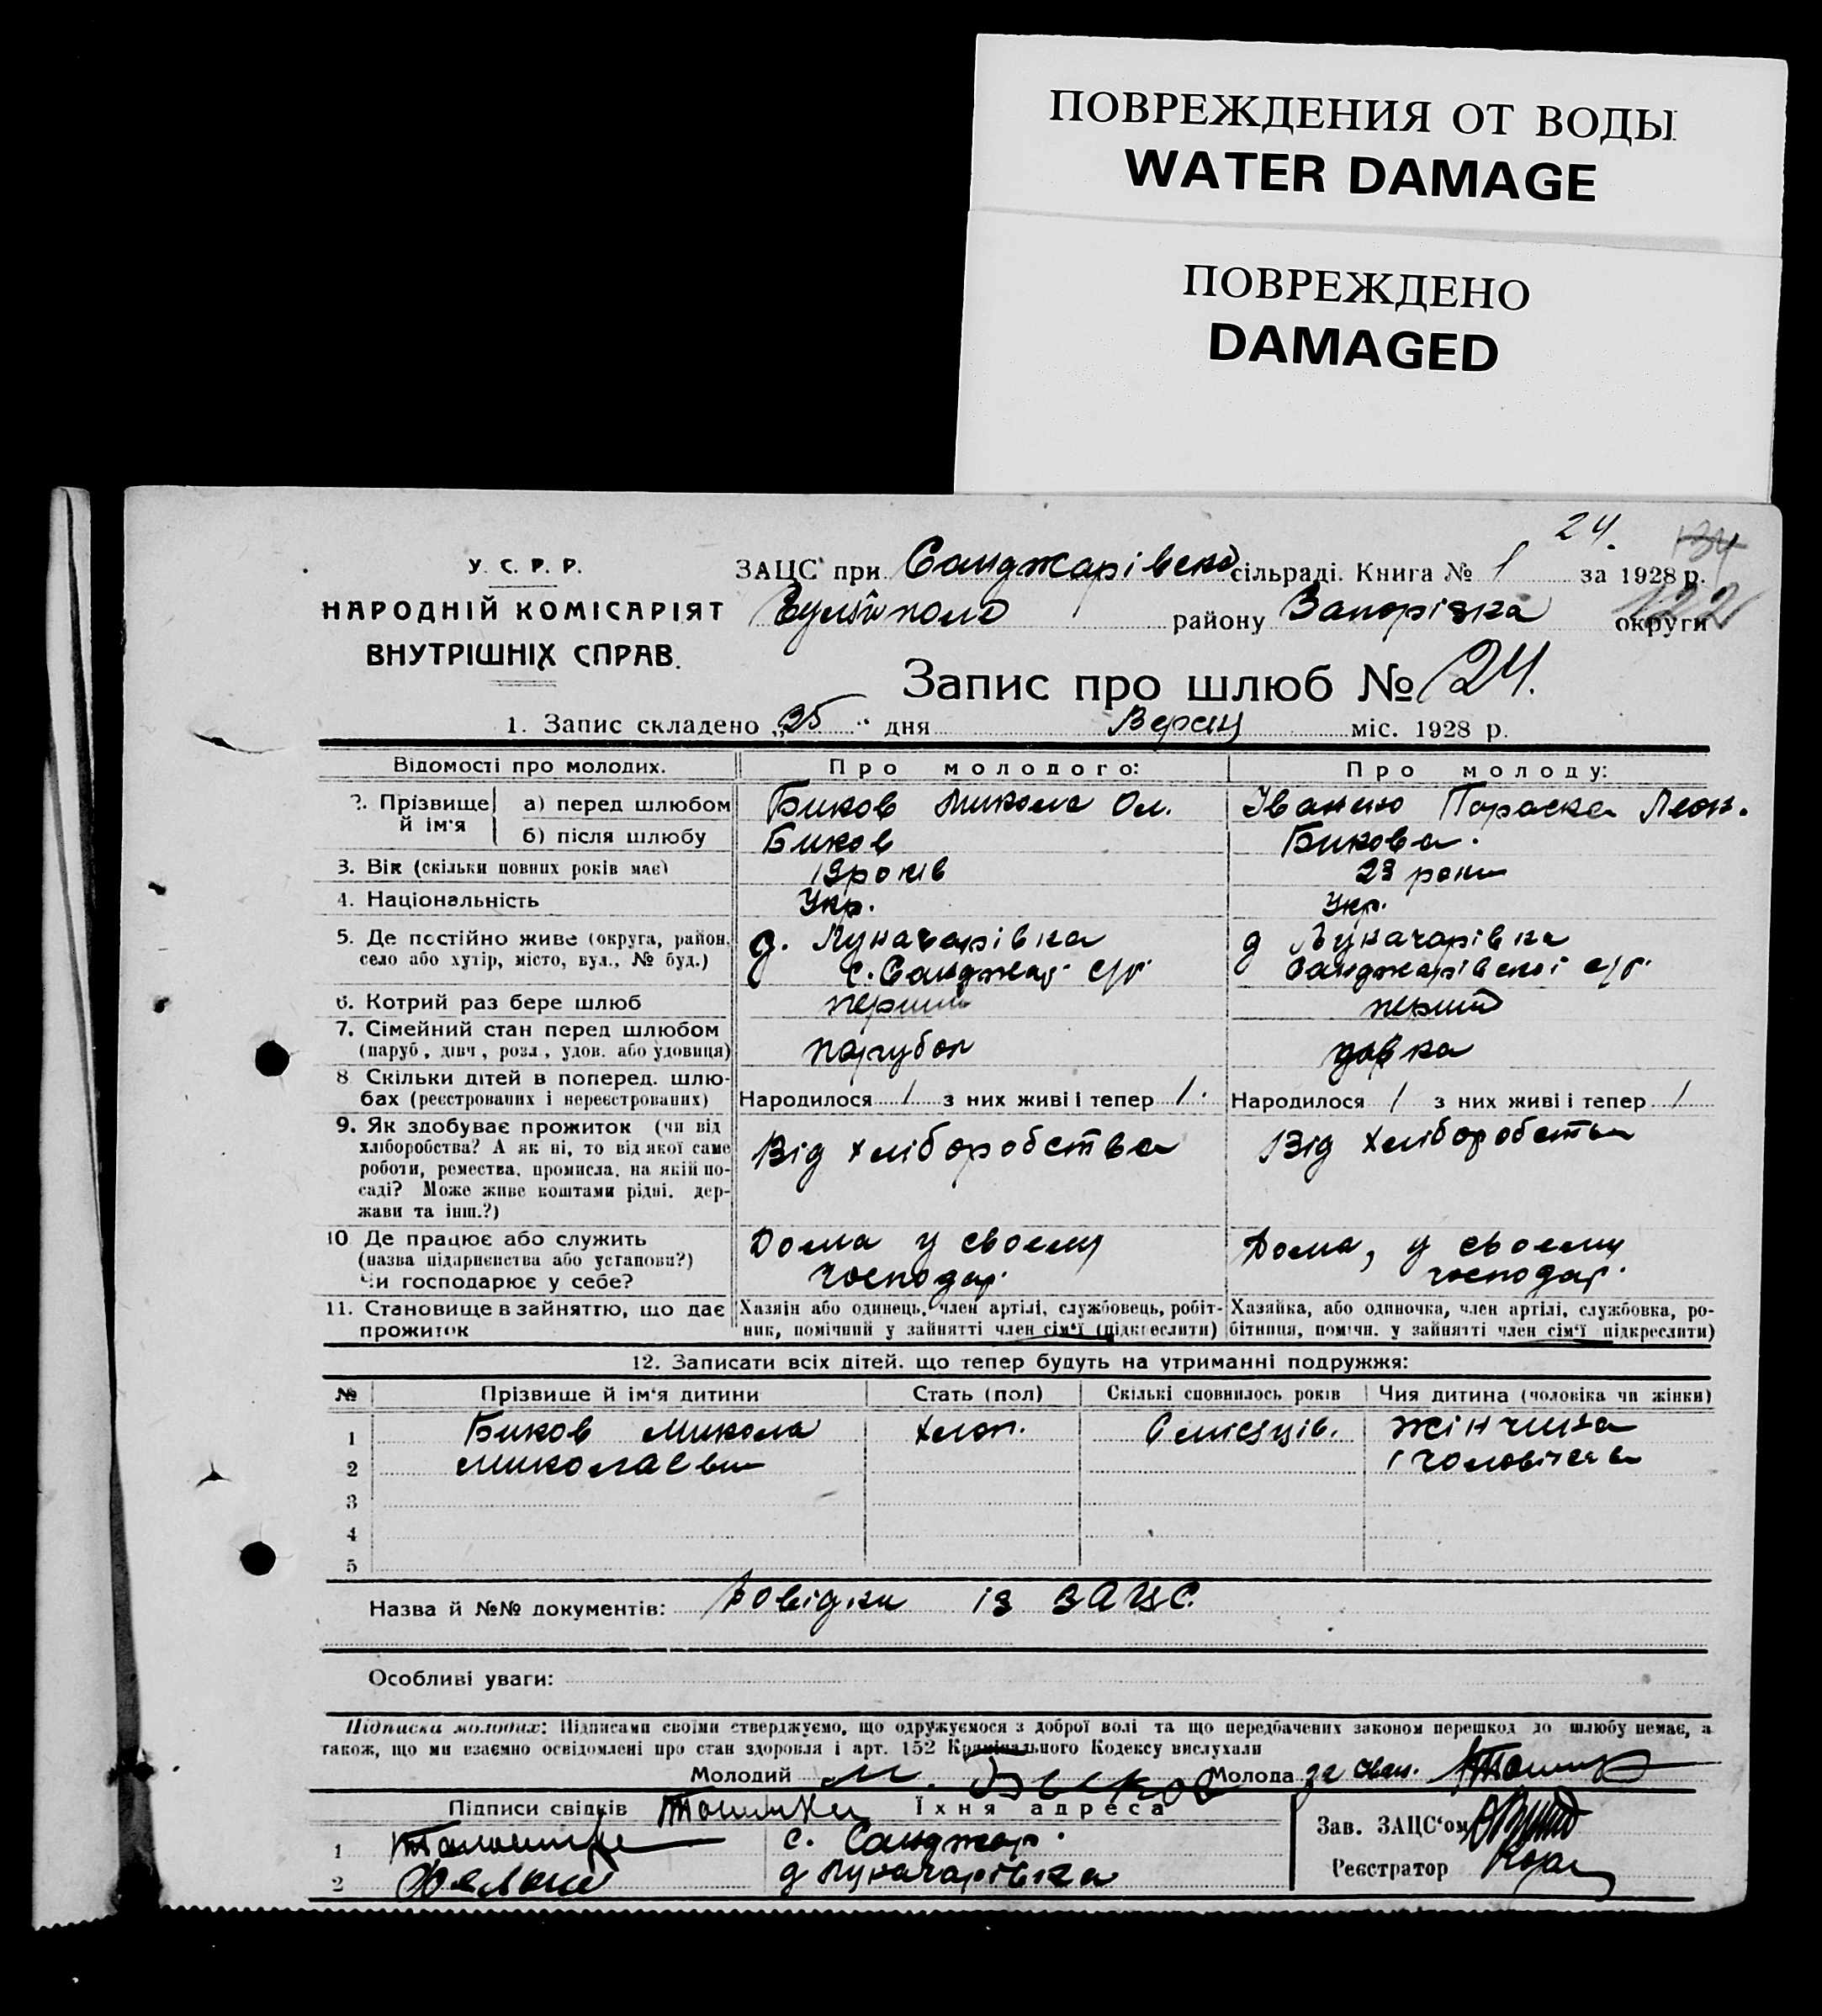 ПОВРЕЖДЕНИЯ ОТ ВОДЫ
WATER DAMAGE
ПОВРЕЖДЕНО
DAMAGED
24.
134
122
У. С. Р. Р.
НАРОДНІЙ КОМІСАРІЯТ
ВНУТРІШНІХ СПРАВ.
ЗАЦС при Санджарівськ сільраді. Книга № 1 за 1928 р.
району Запорізка округи
Запис про шлюб № 24.
1. Запис складено „25" дня Версц міс. 1928 р.
Відомості про молодих. Про молодого: Про молоду:
2. Прізвище й ім'я а) перед шлюбом Биков Микола Ол. Іваненко Параска Леон.
б) після шлюбу Биков Бикова.
3. Вік (скільки повних років має) 19 років 23 роки
4. Національність Укр. Укр.
5. Де постійно живе (округа, район, д. Луначарівка д Луначарівка
село або хутір, місто, вул., № буд.) с. Санджар. с/р. Санджарівської с/р.
6. Котрий раз бере шлюб перший перший
7. Сімейний стан перед шлюбом
(паруб., дівч., розл., удов. або удовиця) парубок дівка
8. Скільки дітей в поперед. шлю-
бах (реєстрованих і нереєстрованих) Народилося / з них живі і тепер / . Народилося / з них живі і тепер /
9. Як здобуває прожиток (чи від
хліборобства? А як ні, то від якої саме Від хліборобства Від хліборобства
роботи, ремества, промисла, на якій по-
саді? Може живе коштами рідні, дер-
жави та інш.?)
10. Де працює або служить Дома у своему Дома, у своему
(назва підприємства або установи?) господар. господар.
Чи господарює у себе?
11. Становище в зайняттю, що дає Хазяін або одинець, член артілі, службовець, робіт- Хазяйка, або одиночка, член артілі, службовка, ро-
прожиток ник, помічний у зайнятті член сім'ї (підкреслити) бітниця, помічн. у зайнятті член сім'ї підкреслити)
12. Записати всіх дітей, що тепер будуть на утриманні подружжя:
№ Прізвище й ім'я дитини Стать (пол) Скількі сповнилось років Чия дитина (чоловіка чи жінки)
1 Биков Микола хлоп. місяців. жінчина
2 Миколаєви і чоловікова
3
4
5
Назва й №№ документів: Довідки із ЗАЦС.
Особливі уваги:
Підписка молодих: Підписами своїми стверджуємо, що одружуємося з доброї волі та що передбачених законом перешкод до шлюбу немає, а
також, що ми взаємно освідомлені про стан здоровля і арт. 152 Кримінального Кодексу вислухали
Молодий М. Биков Молода за
Підписи свідків Їхня адреса
1 с. Санджар.
2 д Луначарівка
Зав. ЗАЦС'ом
Реєстратор